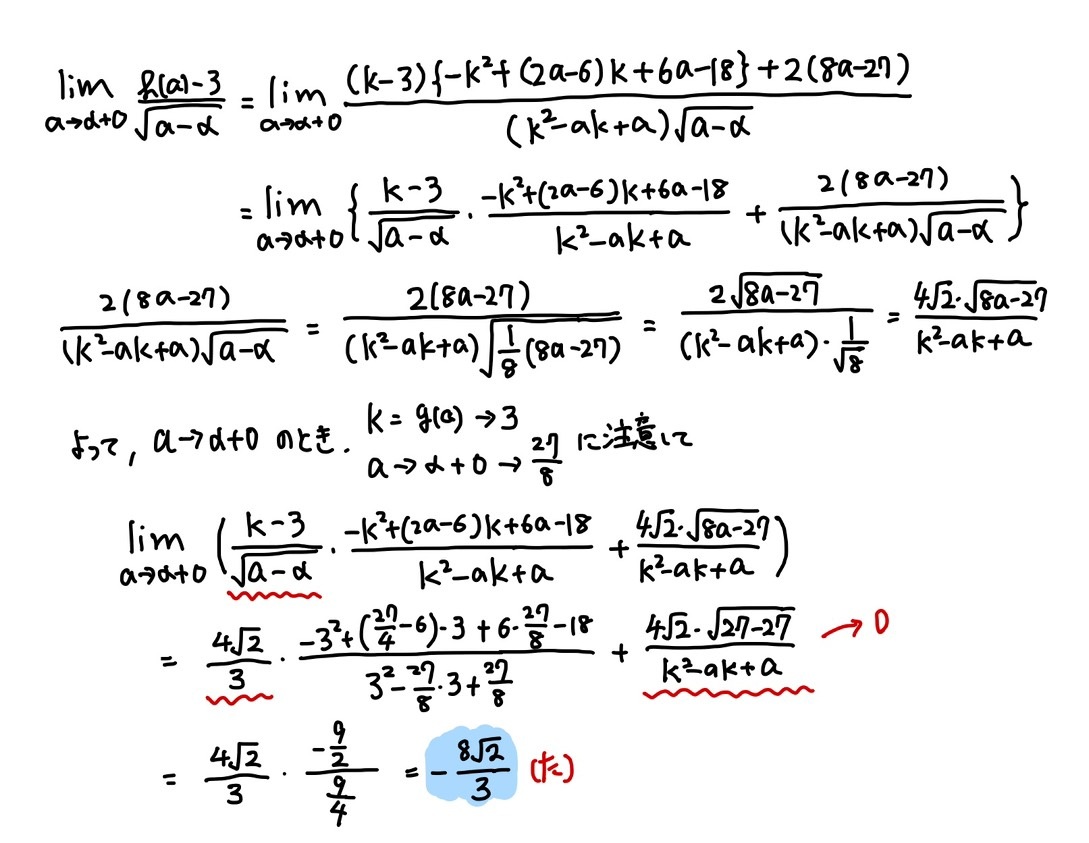 lim_{a→α+0} (h(a)-3)/√(a-α) = lim_{a→α+0} ((k-3){-k²+(2a-6)k+6a-18}+2(8a-27))/((k²-ak+a)√(a-α))
= lim_{a→α+0} { (k-3)/√(a-α) · (-k²+(2a-6)k+6a-18)/(k²-ak+a) + 2(8a-27)/((k²-ak+a)√(a-α)) }
2(8a-27)/((k²-ak+a)√(a-α)) = 2(8a-27)/((k²-ak+a)√(1/8(8a-27))) = 2√(8a-27)/((k²-ak+a)·1/√8) = 4√2·√(8a-27)/(k²-ak+a)
よって, a→α+0 のとき. k=g(a)→3
a→α+0→27/8 に注意して
lim_{a→α+0} ( (k-3)/√(a-α) · (-k²+(2a-6)k+6a-18)/(k²-ak+a) + 4√2·√(8a-27)/(k²-ak+a) )
= 4√2/3 · (-3²+(27/4-6)·3+6·27/8-18)/(3²-27/8·3+27/8) + 4√2·√(27-27)/(k²-ak+a) → 0
= 4√2/3 · (-9/2)/(9/4) = -8√2/3 (た)